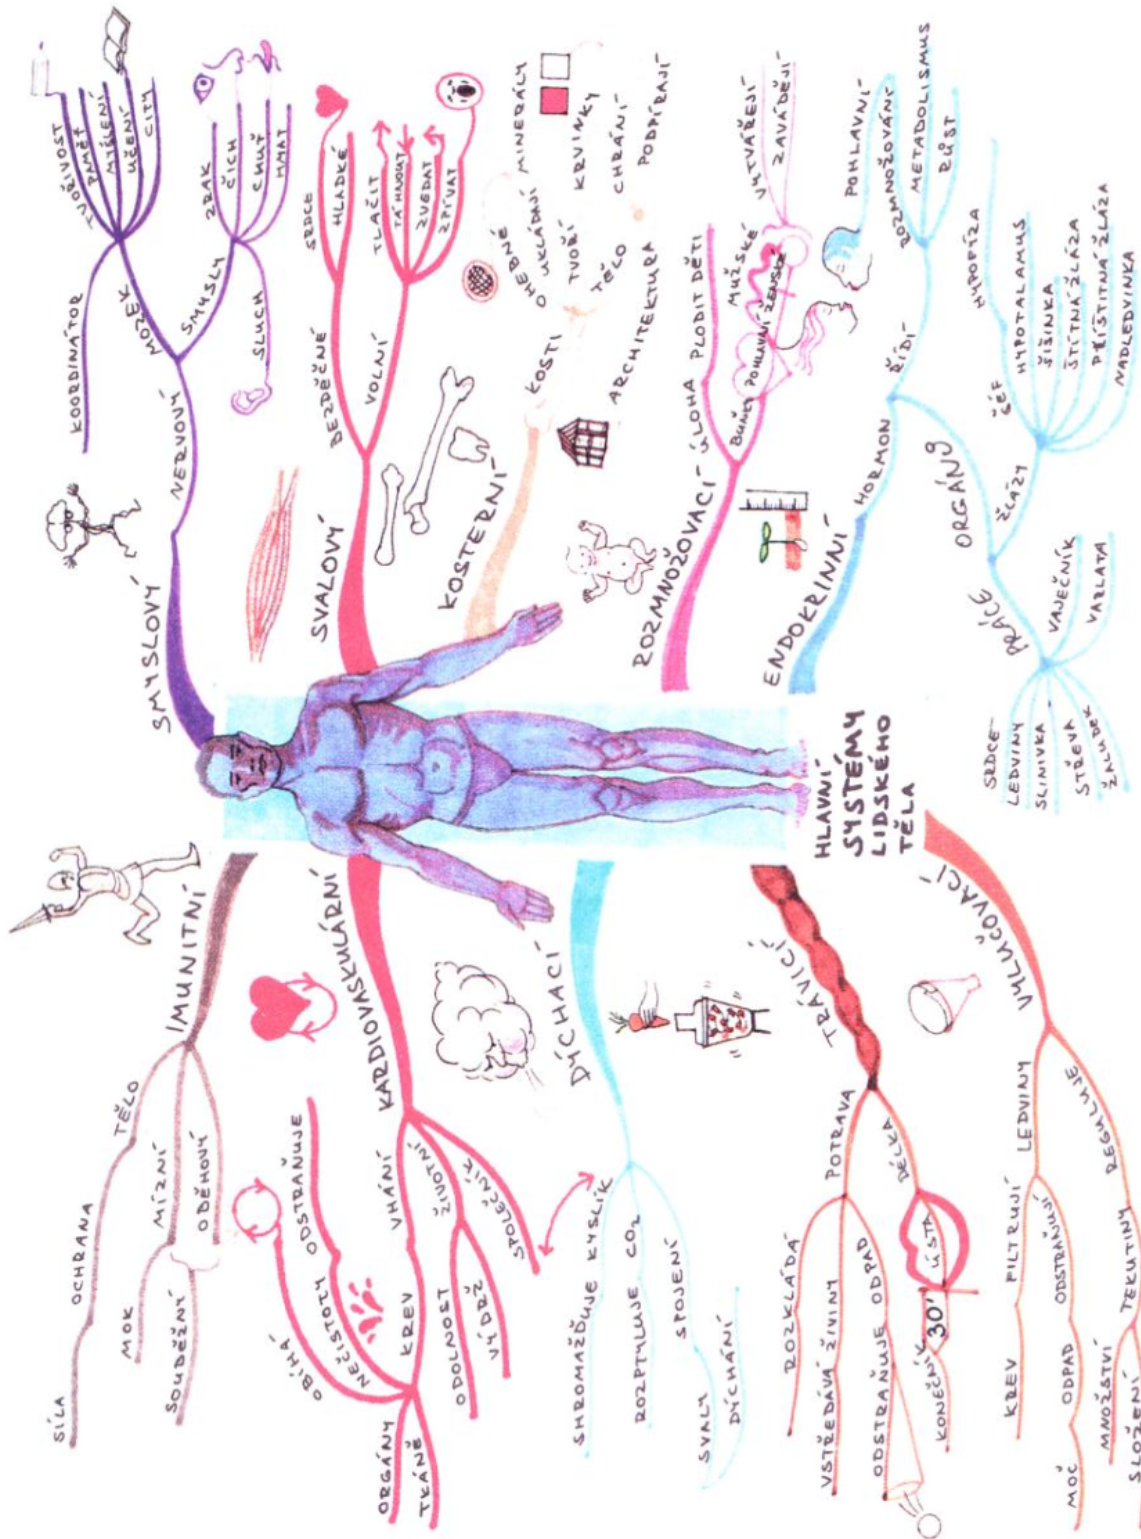 HLAVNÍ
SYSTÉMY
LIDSKÉHO
TĚLA
SMYSLOVÝ
NERVOVÝ
MOZEK
KOORDINÁTOR
TVOŘIVOST
PAMĚŤ
MYŠLENÍ
UČENÍ
CITY
SMYSLY
ZRAK
ČICH
CHUŤ
HMAT
SLUCH
SVALOVÝ
BEZDĚČNÉ
SRDCE
HLADKÉ
VOLNÍ
TLAČIT
TÁHNOUT
ZVEDAT
ZPÍVAT
KOSTERNÍ
KOSTI
OHEBNÉ
UKLÁDAJÍ
MINERÁLY
TVOŘÍ
KRVINKY
TĚLO
CHRÁNÍ
PODPÍRAJÍ
ARCHITEKTURA
ROZMNOŽOVACÍ
ÚLOHA
PLODIT DĚTI
BUŇKY
POHLAVNÍ
MUŽSKÉ
ŽENSKÉ
VYTVÁŘEJÍ
ZAVÁDĚJÍ
ENDOKRINNÍ
HORMON
ŘÍDÍ
POHLAVNÍ
ROZMNOŽOVÁNÍ
METADOLISMUS
RŮST
ORGÁNY
ŽLÁZY
ŠÉF
HYPOFÍZA
HYPOTALAMUS
ŠIŠINKA
ŠTÍTNÁ ŽLÁZA
PŘÍŠTITNÁ ŽLÁZA
NADLEDVINKA
PRÁCE
VAJEČNÍK
VARLATA
SRDCE
LEDVINY
SLINIVKA
STŘEVA
ŽALUDEK
IMUNITNÍ
TĚLO
OCHRANA
SÍLA
MÍZNÍ
MOK
ODĚHOVÝ
SOUDĚŽNÝ
KARDIOVASKULÁRNÍ
VHÁNÍ
KREV
ODSTRAŇUJE
NEČISTOTY
OBÍHÁ
ORGÁNY
TKÁNĚ
ŽIVOTNÍ
ODOLNOST
VÝDRŽ
SPOLEČNÍK
DÝCHACÍ
SHROMAŽĎUJE KYSLÍK
ROZPTYLUJE CO₂
SPOJENÍ
SVALY
DÝCHÁNÍ
TRÁVICÍ
POTRAVA
ROZKLÁDÁ
VSTŘEDÁVÁ ŽIVINY
ODSTRAŇUJE ODPAD
DÉLKA
ÚSTA
30'
KONEČNÍK
VYLUČOVACÍ
LEDVINY
FILTRUJÍ
KREV
ODSTRAŇUJÍ
ODPAD
MOČ
REGULUJE
TEKUTINY
MNOŽSTVÍ
SLOŽENÍ